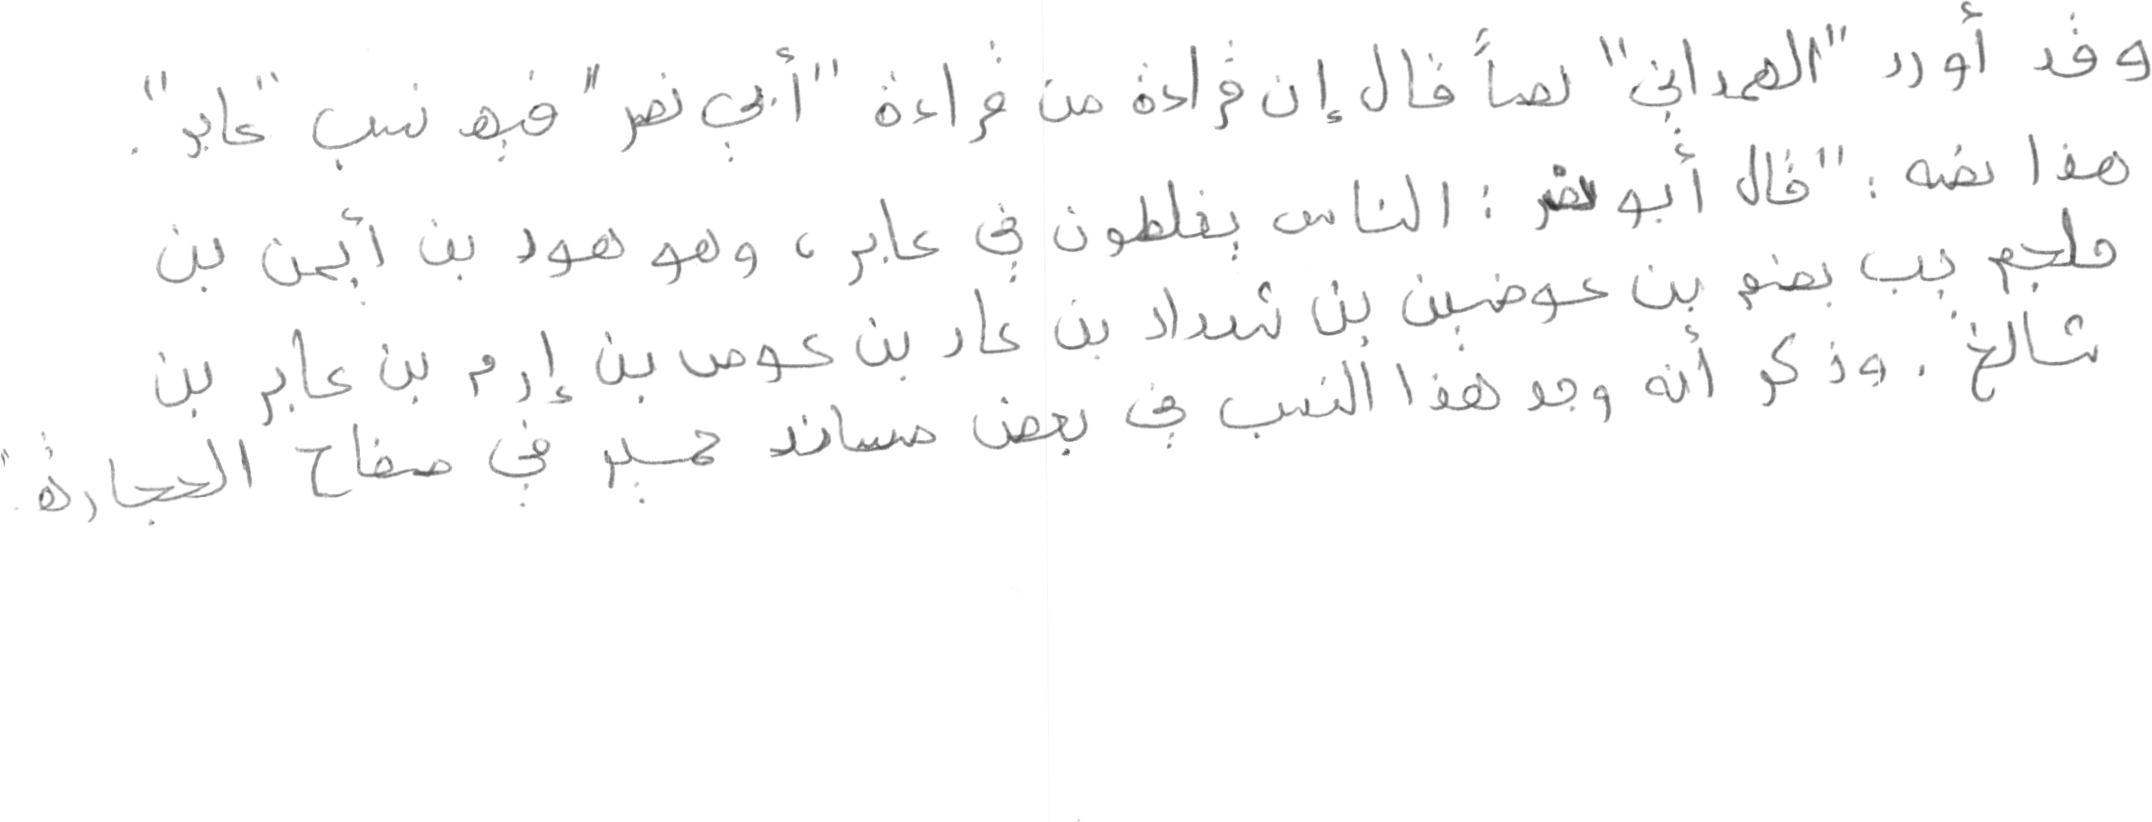 وقد أورد "الهمداني" نصاً قال إن قراءة من قراءة "أبي نصر" فيه نسب "عابر".
هذا نصه : "قال أبو نصر : الناس يغلطون في عابر ، وهو هود بن أيمن بن
حلجم بن بضم بن عوضين بن شداد بن عاد بن عوص بن إرم بن عابر بن
شالخ . وذكر أنه وجد هذا النسب في بعض مساند حمير في صفاح الحجارة".